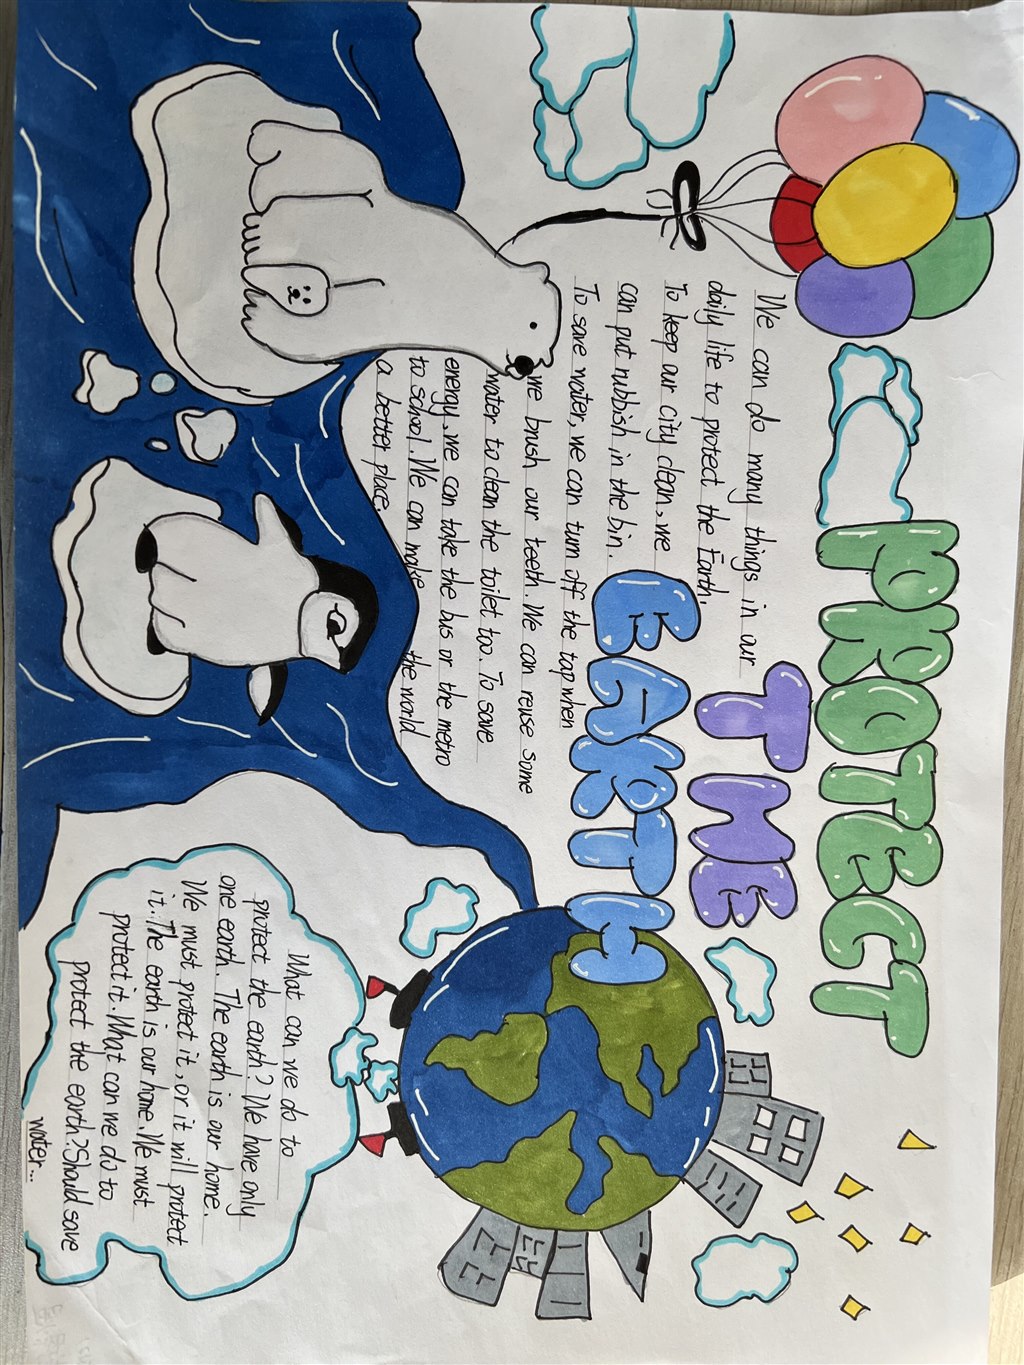 PROTECT
THE
EARTH
We can do many things in our
daily life to protect the Earth.
To keep our city clean, we
can put rubbish in the bin.
To save water, we can turn off the tap when
we brush our teeth. We can reuse some
water to clean the toilet too. To save
energy, we can take the bus or the metro
to school. We can make the world
a better place.
What can we do to
protect the earth? We have only
one earth. The earth is our home.
We must protect it, or it will protect
it. The earth is our home. We must
protect it. What can we do to
protect the earth? Should save
water...